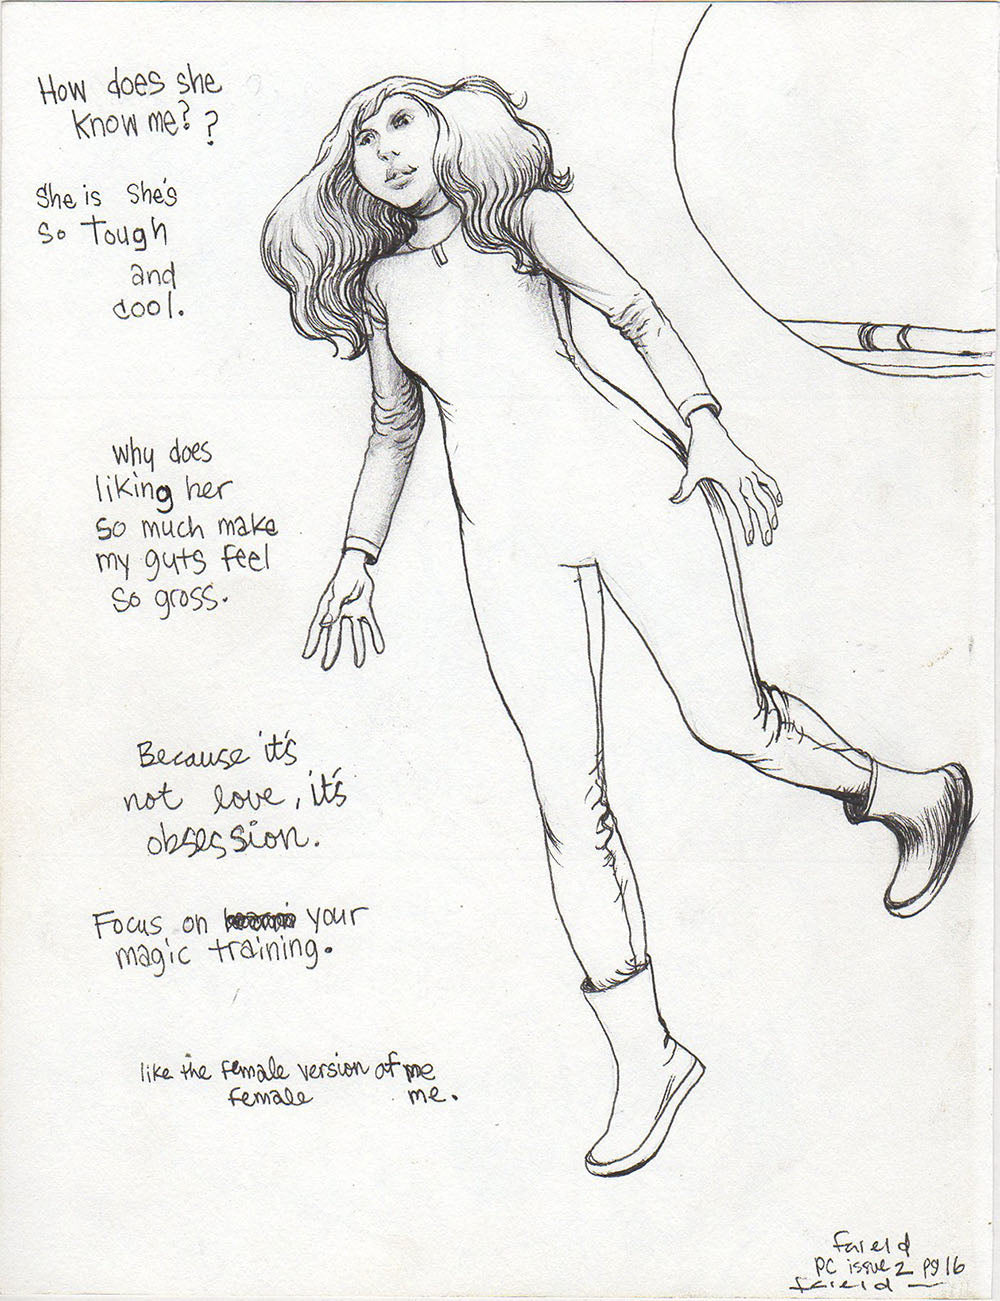 How does she
know me? ?
She is she's
so tough
and
cool.
why does
liking her
so much make
my guts feel
so gross.
Because it's
not love, it's
obsession.
Focus on your
magic training.
like the female version of me
female me.
PC issue 2 pg 16